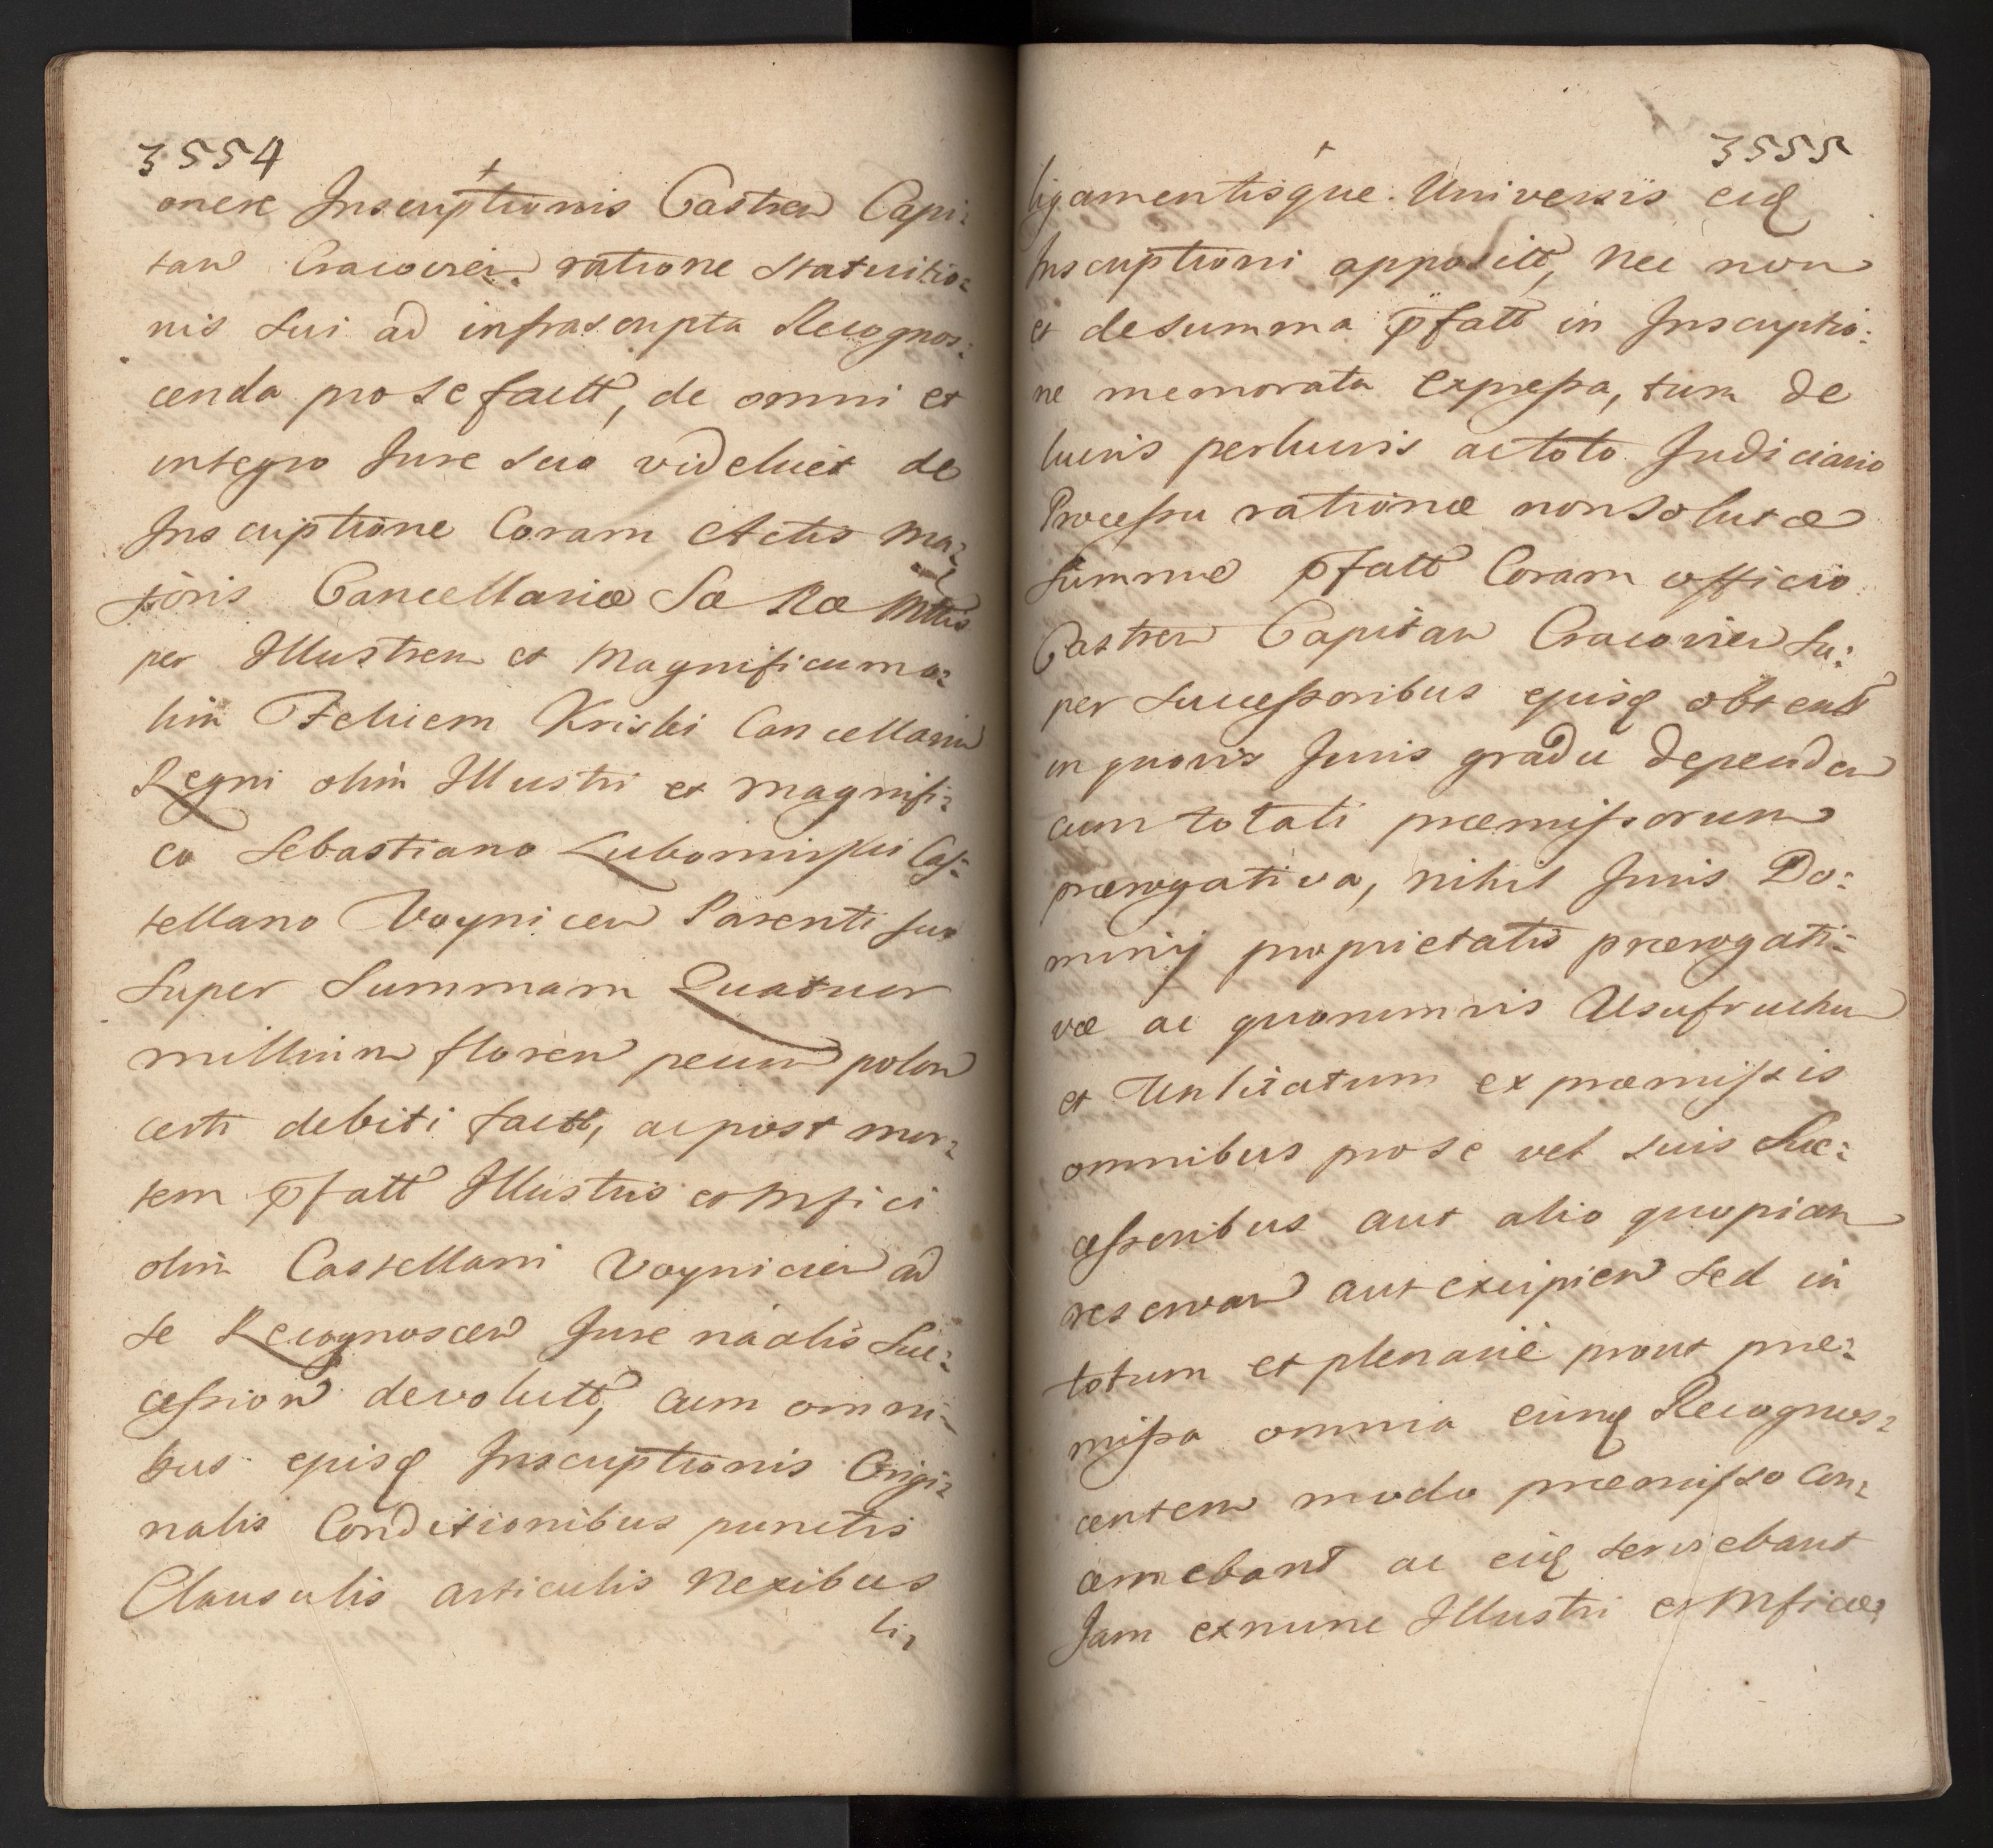 3554
onere Inscriptionis Castren Capi:
tan Cracovien ratione statuitio:
nis sui ad infrascripta Recognos:
cenda pro se factt, de omni et
integro Jure suo videlicet de
Inscriptione Coram Actis Ma:
joris Cancellariæ Sæ Ræ Mttis
per Illustrem et Magnificum o:
lim Felicem Kriski Cancellariu
Regni olim Illustri et Magnifi:
co Sebastiano Lubomirski Cas:
tellano Voynicen Parenti suo
super summam Quatuor
millium floren pecun polon
certi debiti factt, ac post mor:
tem pfatt Illustris et Mfici
olim Castellani Voynicien ad
se Recognoscen Jure nãalis Suc:
cession devolutt, cum omni:
bus ejusq Inscriptionis Origi:
nalis Conditionibus punctis
Clausulis articulis Nexibus
li:
3555
ligamentisque Universis eid
Inscriptioni appositt, Nec non
et de summa pfatt in Inscriptio:
ne memorata expressa, tum de
lucris perlucris ac toto Judiciario
Processu rationæ non solutæ
summe pfatt Coram officio
Castren Capitan Cracovien su:
per successoribus ejusq obtent
in quovis Juris gradu dependen
cum totali præmissorum
prærogativa, nihil Juris Do:
minij proprietatis prærogati:
væ ac quorumvis Usufructuu
et Utilitatum ex præmissis
omnibus pro se vel suis Suc:
cessoribus aut alio quopiam
reservan aut excipien sed in
totum et plenarie prout præ:
missa omnia eunq Recognos:
centem modo præmisso con:
cernebant ac eiq serviebant
Jam ex nunc Illustri et Mficæ: